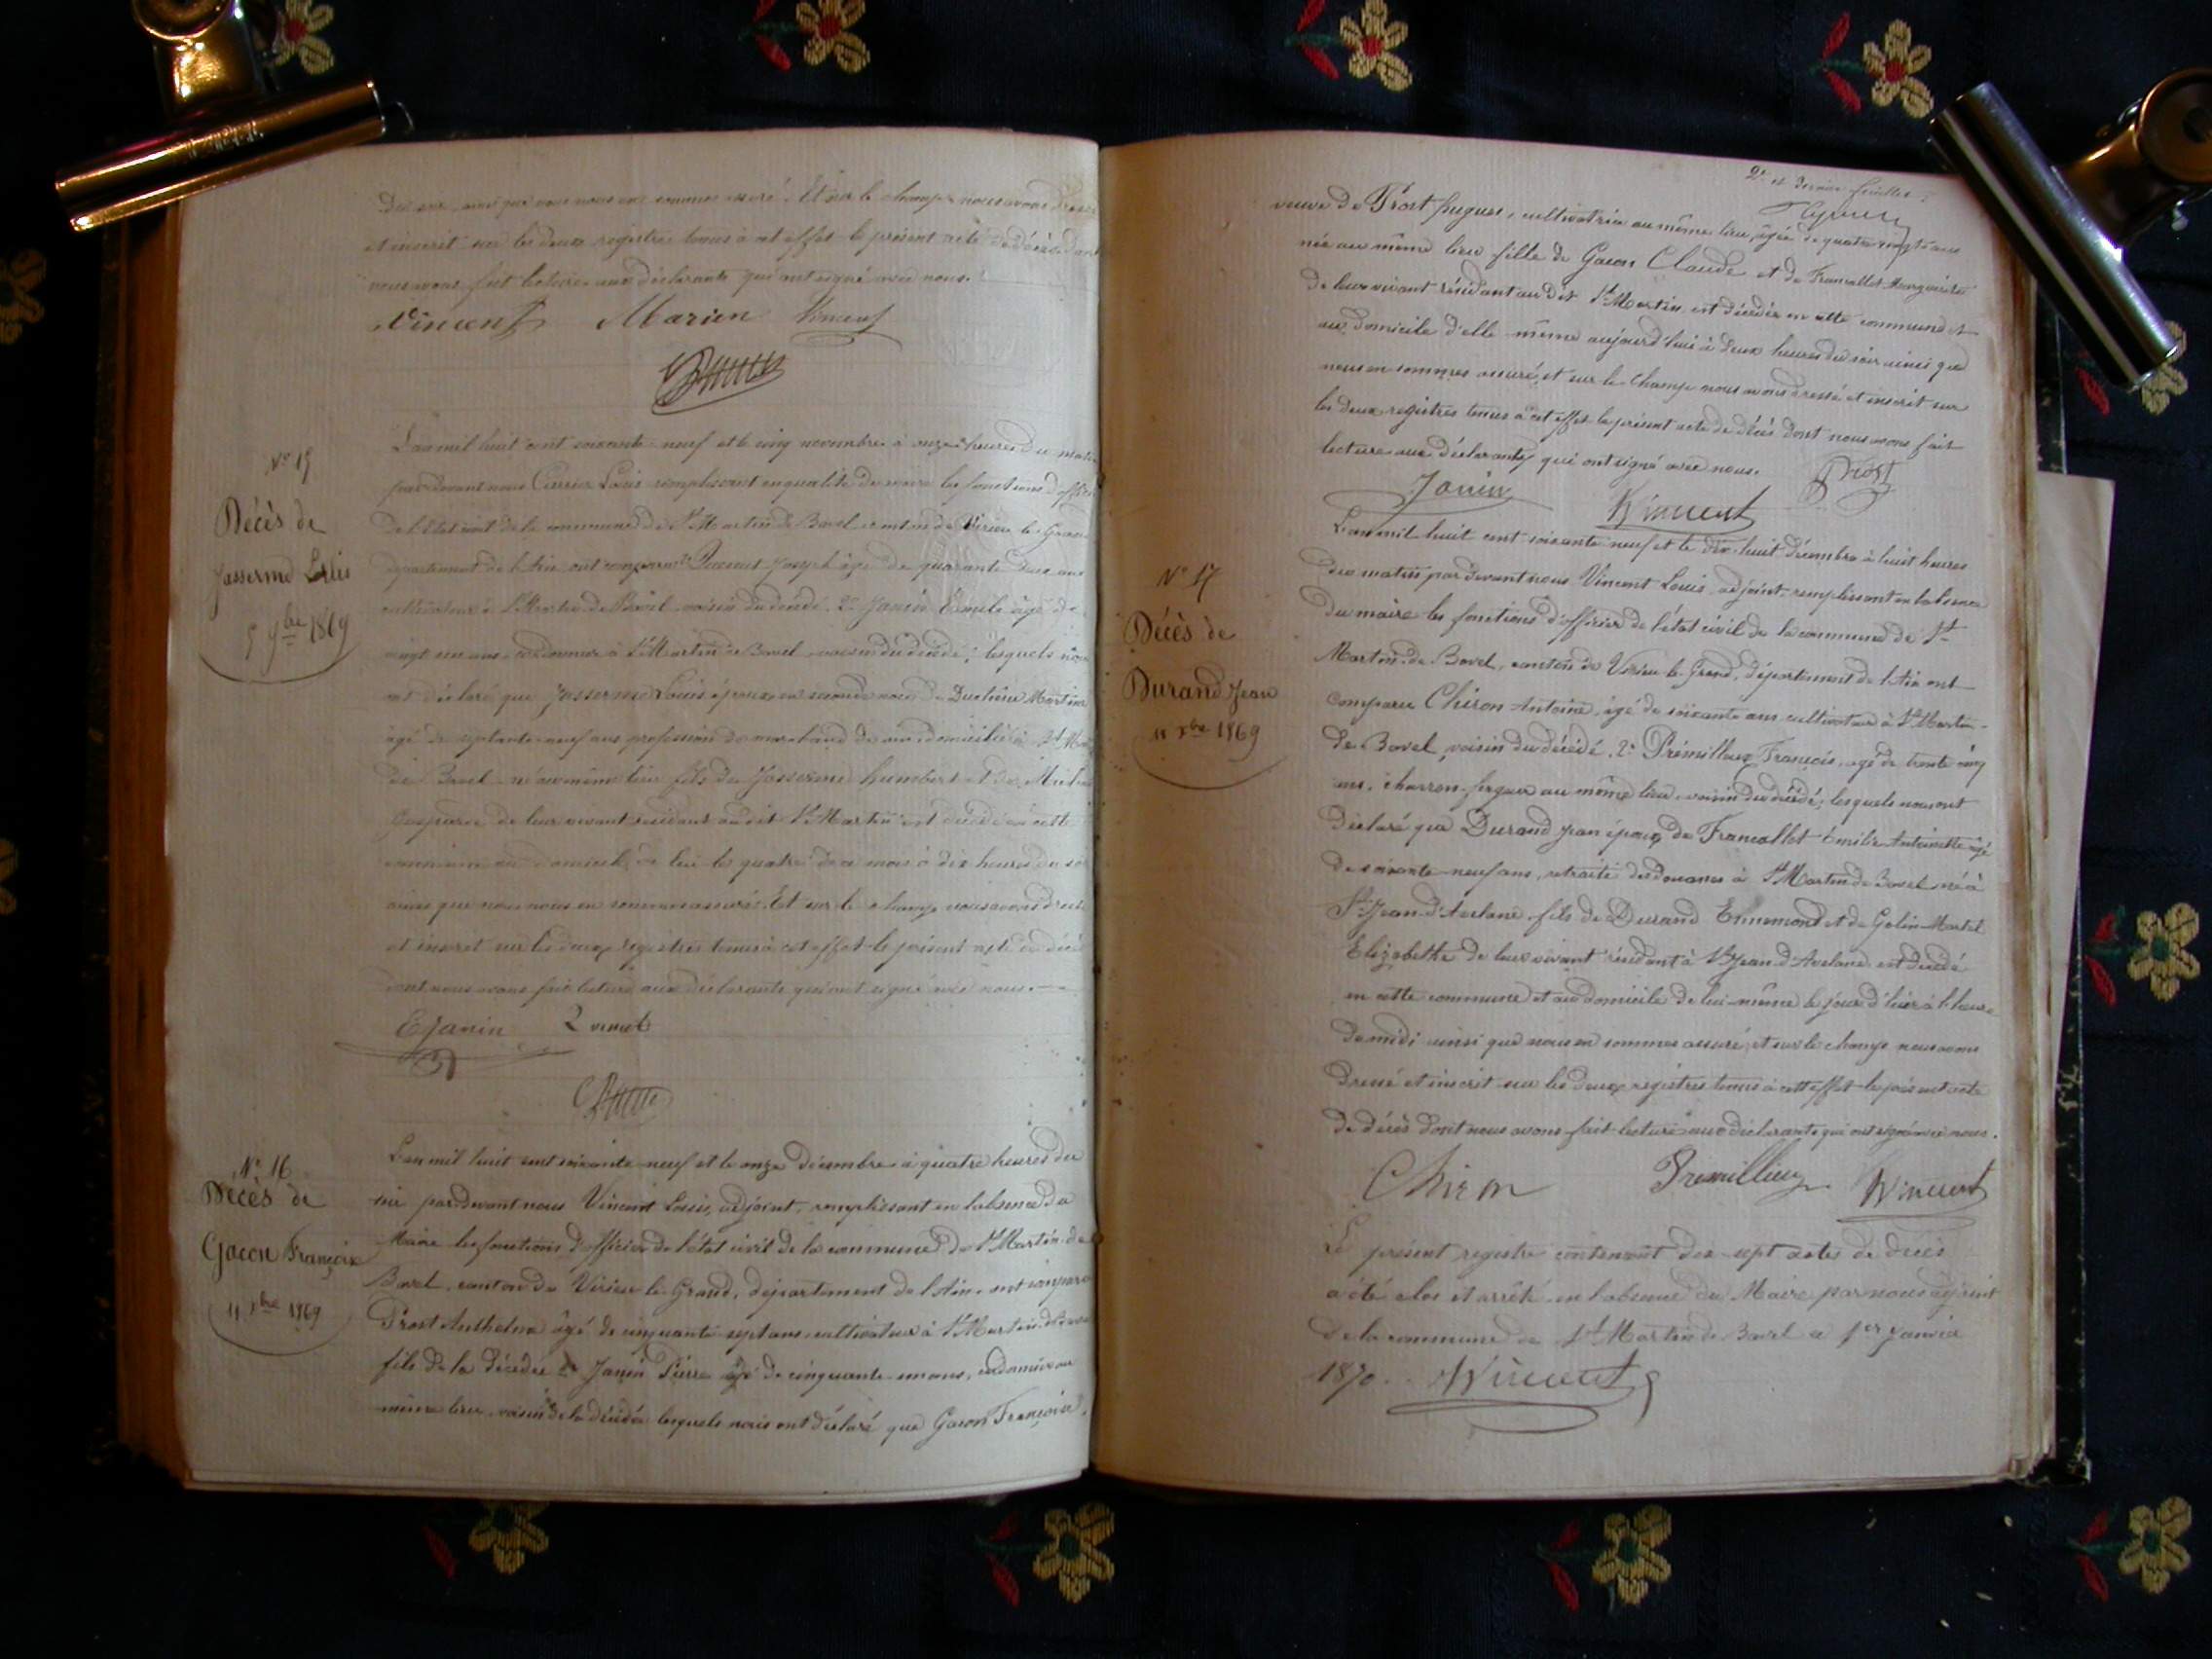 Du soir, ainsi que nous nous en sommes assuré. Et sur le champ nous avons dressé
et inscrit sur les deux registres tenus à cet effet le présent acte de décès dont
nous avons fait lecture aux déclarants qui ont signé avec nous.
Vincent Marion Vincent
N° 15
Décès de
Jasserme Louis
5 9bre 1869
L'an mil huit cent soixante-neuf et le cinq novembre à onze heures du matin
pardevant nous Louis remplissant en qualité de maire les fonctions d'officier
de l'état civil de la commune de St Martin de Bavel canton de Virieu le Grand
département de l'Ain ont comparu Joseph âgé de quarante deux ans
cultivateur à St Martin de Bavel voisin du décédé, 2° Janin Emile âgé de
vingt ans cordonnier à St Martin de Bavel voisin du décédé; lesquels nous
ont déclaré que Jasserme Louis époux en seconde noces de Martine
âgé de septante-neuf ans profession de marchand domicilié à St Martin
de Bavel né au même lieu fils de Jasserme humbert et de
de leur vivant résidant au dit St Martin est décédé en cette
commune au domicile de lui le quatre de ce mois à dix heures du soir
ainsi que nous nous en sommes assuré. Et sur le champ nous avons dressé
et inscrit sur les deux registres tenus à cet effet le présent acte de décès
dont nous avons fait lecture aux déclarants qui ont signé avec nous.
E Janin
N° 16
Décès de
Gacon Françoise
11 xbre 1869
L'an mil huit cent soixante-neuf et le onze décembre à quatre heures du
soir pardevant nous Vincent Louis, adjoint, remplissant en l'absence du
Maire les fonctions d'officier de l'état civil de la commune de St Martin de
Bavel, canton de Virieu le Grand, département de l'Ain, ont comparu
Prost Anthelme âgé de cinquante sept ans, cultivateur à St Martin de Bavel
fils de la décédée 2° Janin Pierre âgé de cinquante un ans, cordonnier au
même lieu, voisin de la décédée lesquels nous ont déclaré que Gacon Françoise,
2e et dernier feuillet
veuve de Prost hugues, cultivatrice au même lieu, âgée de quatre vingts ans
née au même lieu fille de Gacon Claude et de Francallet Marguerite
de leur vivant résidant au dit St Martin, est décédée en cette commune et
au domicile d'elle même aujourd'hui à deux heures du soir ainsi que
nous en sommes assuré, et sur le champ nous avons dressé et inscrit sur
les deux registres tenus à cet effet le présent acte de décès dont nous avons fait
lecture aux déclarants qui ont signé avec nous.
Janin Vincent Prost
N° 17
Décès de
Durand Jean
11 xbre 1869
L'an mil huit cent soixante neuf et le dix-huit décembre à huit heures
du matin par devant nous Vincent Louis, adjoint, remplissant en l'absence
du maire les fonctions d'officier de l'état civil de la commune de St
Martin de Bavel, canton de Virieu le Grand, département de l'Ain ont
comparu Chiron Antoine, âgé de soixante ans cultivateur à St Martin
de Bavel, voisin du décédé, 2° Prémillieux François, âgé de trente cinq
ans, charron-forgeur au même lieu, voisin du décédé; lesquels nous ont
déclaré que Durand Jean époux de Francallet Émilie Antoinette âgé
de soixante-neuf ans, retraité des douanes à St Martin de Bavel né à
St Jean d'Avelane fils de Durand Ennemond et de Golin-Martel
Elizabethe de leur vivant résidant à St Jean d'Avelane est décédé
en cette commune et au domicile de lui-même le jour d'hier à l'heure
de midi ainsi que nous en sommes assuré, et sur le champ nous avons
dressé et inscrit sur les deux registres tenus à cet effet le présent acte
de décès dont nous avons fait lecture aux déclarants qui ont signé avec nous.
Chiron Premillieux Vincent
Le présent registre contenant dix-sept actes de décès
a été clos et arrêté en l'absence du Maire par nous adjoint
de la commune de St Martin de Bavel ce 1er Janvier
1870. Vincent